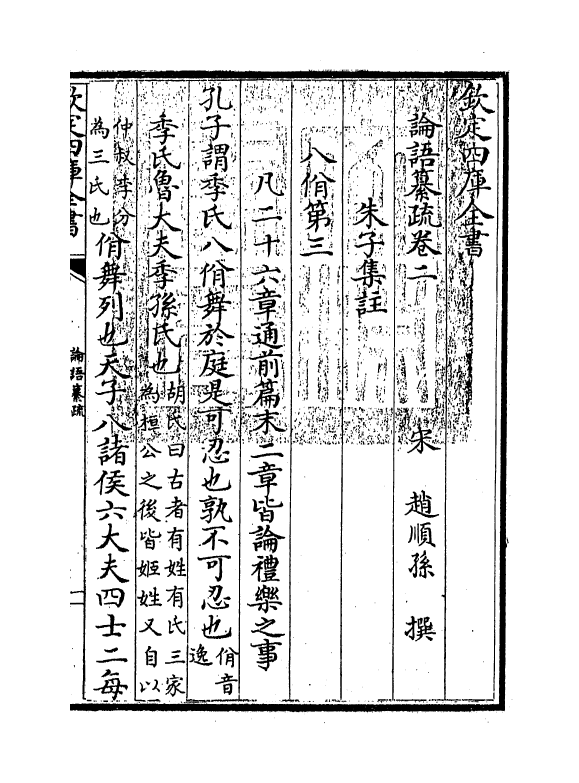 欽定四庫全書
論語纂疏卷二　宋　趙順孫　撰
朱子集註
八佾第三
凡二十六章通前篇末二章皆論禮樂之事
孔子謂季氏八佾舞於庭是可忍也孰不可忍也佾音
逸
季氏魯大夫季孫氏也胡氏曰古者有姓有氏三家
為桓公之後皆姬姓又自以
仲叔季分
為三氏也佾舞列也天子八諸侯六大夫四士二每
欽定四庫全書
論語纂疏
一